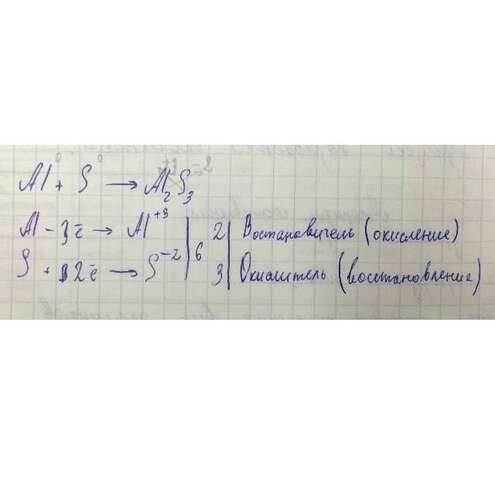 Al⁰ + S⁰ → Al₂⁺³S₃⁻²
Al - 3ē → Al⁺³ | 6 | 2 | Востановитель (окисление)
S + 2ē → S⁻² | 3 | Окислитель (восстановление)